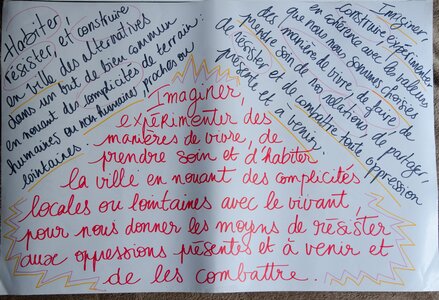 Habiter,
résister et construire
en ville des alternatives
dans un but de bien commun
en nouant des complicités de terrain :
humaines ou non humaines, proches ou
lointaines.
Imaginer,
construire, expérimenter
en cohérence avec les valeurs
que nous nous sommes choisies
des manières de vivre, de faire, de
prendre soin de nos relations, de partager,
de résister et de combattre toute oppression
présente et à venir.
Imaginer,
expérimenter des
manières de vivre, de
prendre soin et d'habiter
la ville en nouant des complicités
locales ou lointaines avec le vivant
pour nous donner les moyens de résister
aux oppressions présentes et à venir et
de les combattre.